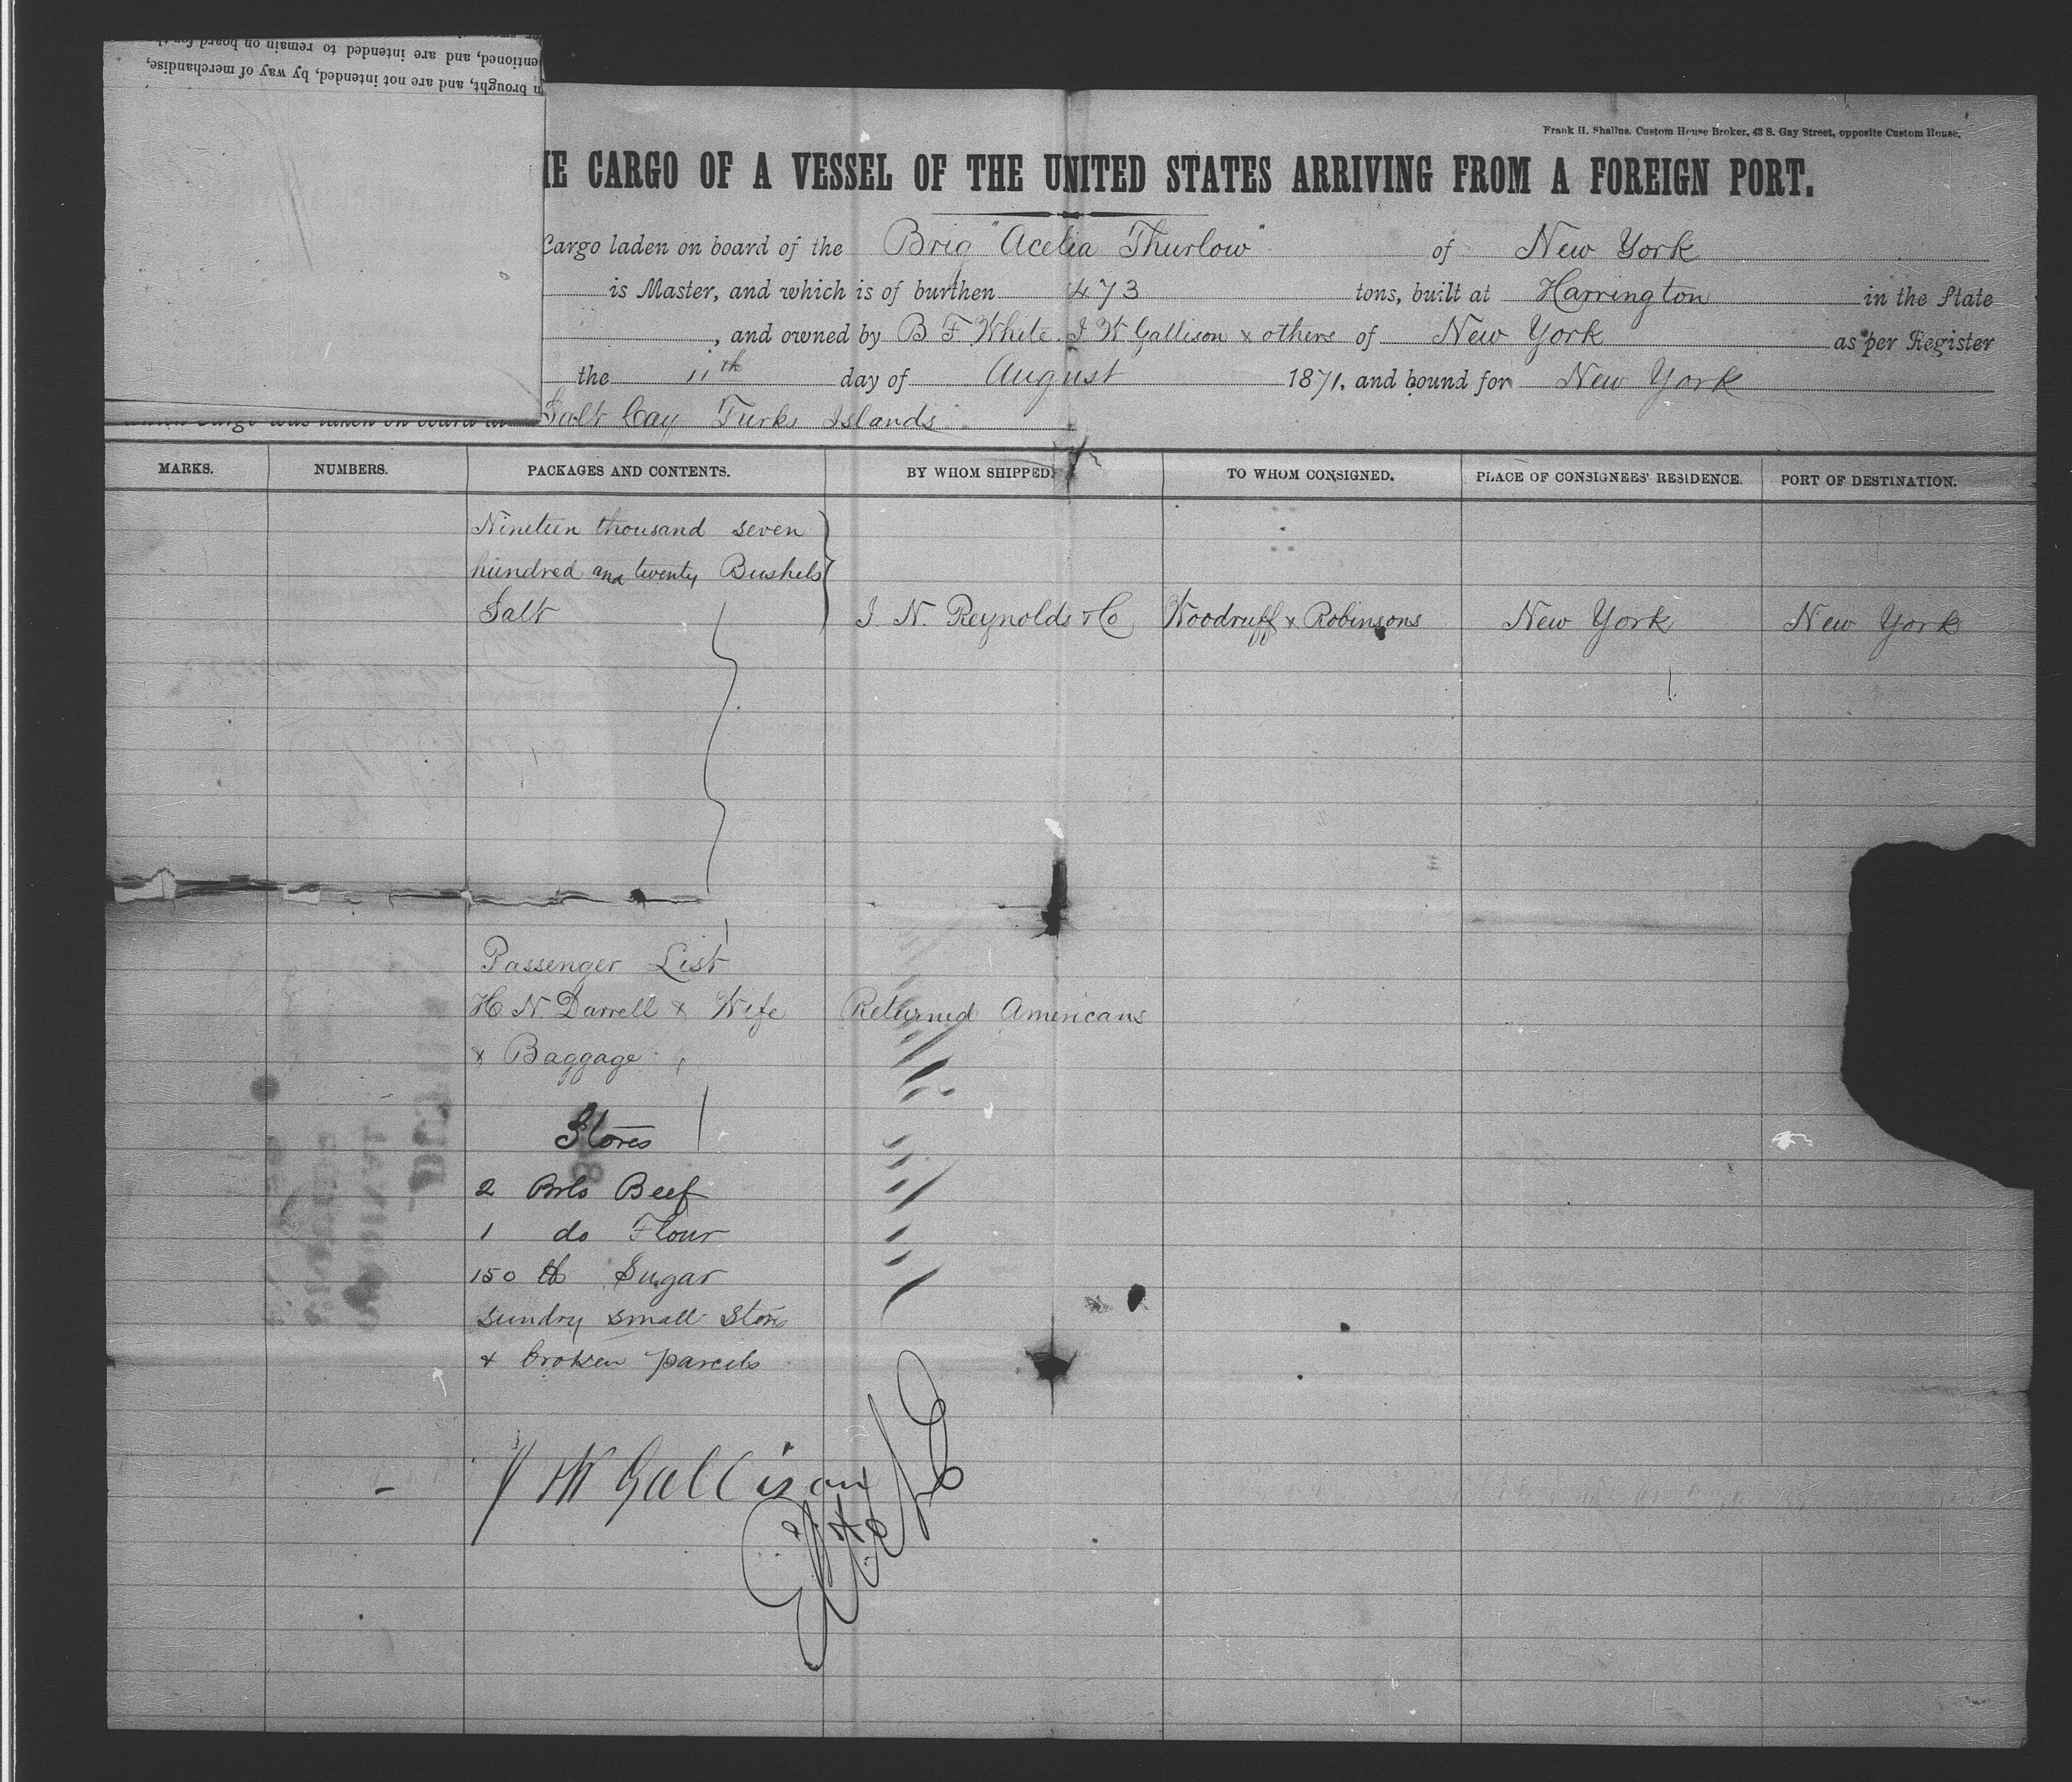 entioned, and are intended to remain on board for
n brought, and are not intended, by way of merchandise,
Frank H. Shallus. Custom House Broker, 43 S. Gay Street, opposite Custom House.
HE CARGO OF A VESSEL OF THE UNITED STATES ARRIVING FROM A FOREIGN PORT.
Cargo laden on board of the Brig "Acelia Thurlow" of New York
is Master, and which is of burthen 473 tons, built at Harrington in the State
, and owned by B F White. J W Gallison & others of New York as per Register
the 11th day of August 1871, and bound for New York
which Cargo was taken on board at Salt Cay Turks Islands
MARKS. NUMBERS. PACKAGES AND CONTENTS. BY WHOM SHIPPED. TO WHOM CONSIGNED. PLACE OF CONSIGNEES' RESIDENCE. PORT OF DESTINATION.
Nineteen thousand seven
hundred and twenty Bushels
Salt J. N. Reynolds & Co Woodruff & Robinsons New York New York
Passenger List
H N Darrell & Wife Returned Americans
& Baggage
Stores
2 Brls Beef
1 do Flour
150 lb Sugar
sundry small Stores
& broken parcels
J W Gallison